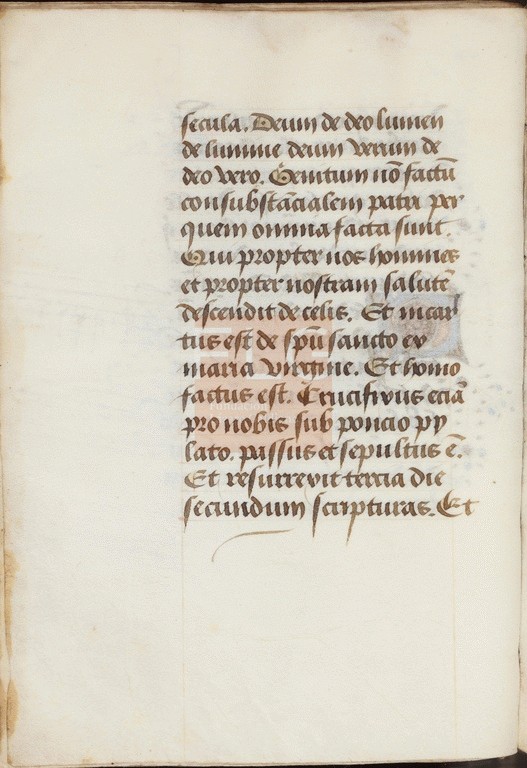 secula. Deum de deo lumen
de lumine deum verum de
deo vero. Genitum nō factū
consubstācialem patri per
quem omnia facta sunt.
Qui propter nos homines
et propter nostram salutē
descendit de celis. Et incar
tus est de spū sancto ex
maria virgine. Et homo
factus est. Crucifixus eciā
pro nobis sub poncio py
lato. passus et sepultus ē.
Et resurrexit tercia die
secundum scripturas. Et